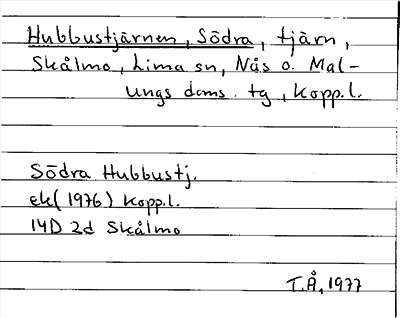 Hubbustjärnen, Södra, tjärn,
Skålmo, Lima sn, Nås o. Mal-
ungs doms. tg, Kopp.l.
Södra Hubbustj.
ek(1976) Kopp.l.
14D 2d Skålmo
T.Å, 1977